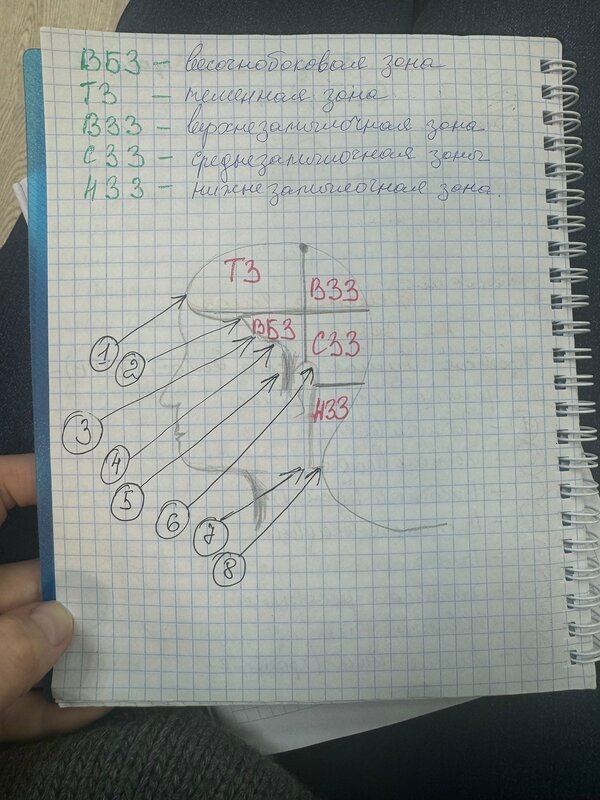 ВБЗ – височнобоковая зона
ТЗ – теменная зона
ВЗЗ – верхнезатылочная зона
СЗЗ – среднезатылочная зона
НЗЗ – нижнезатылочная зона.
ТЗ
ВЗЗ
ВБЗ
СЗЗ
НЗЗ
1
2
3
4
5
6
7
8